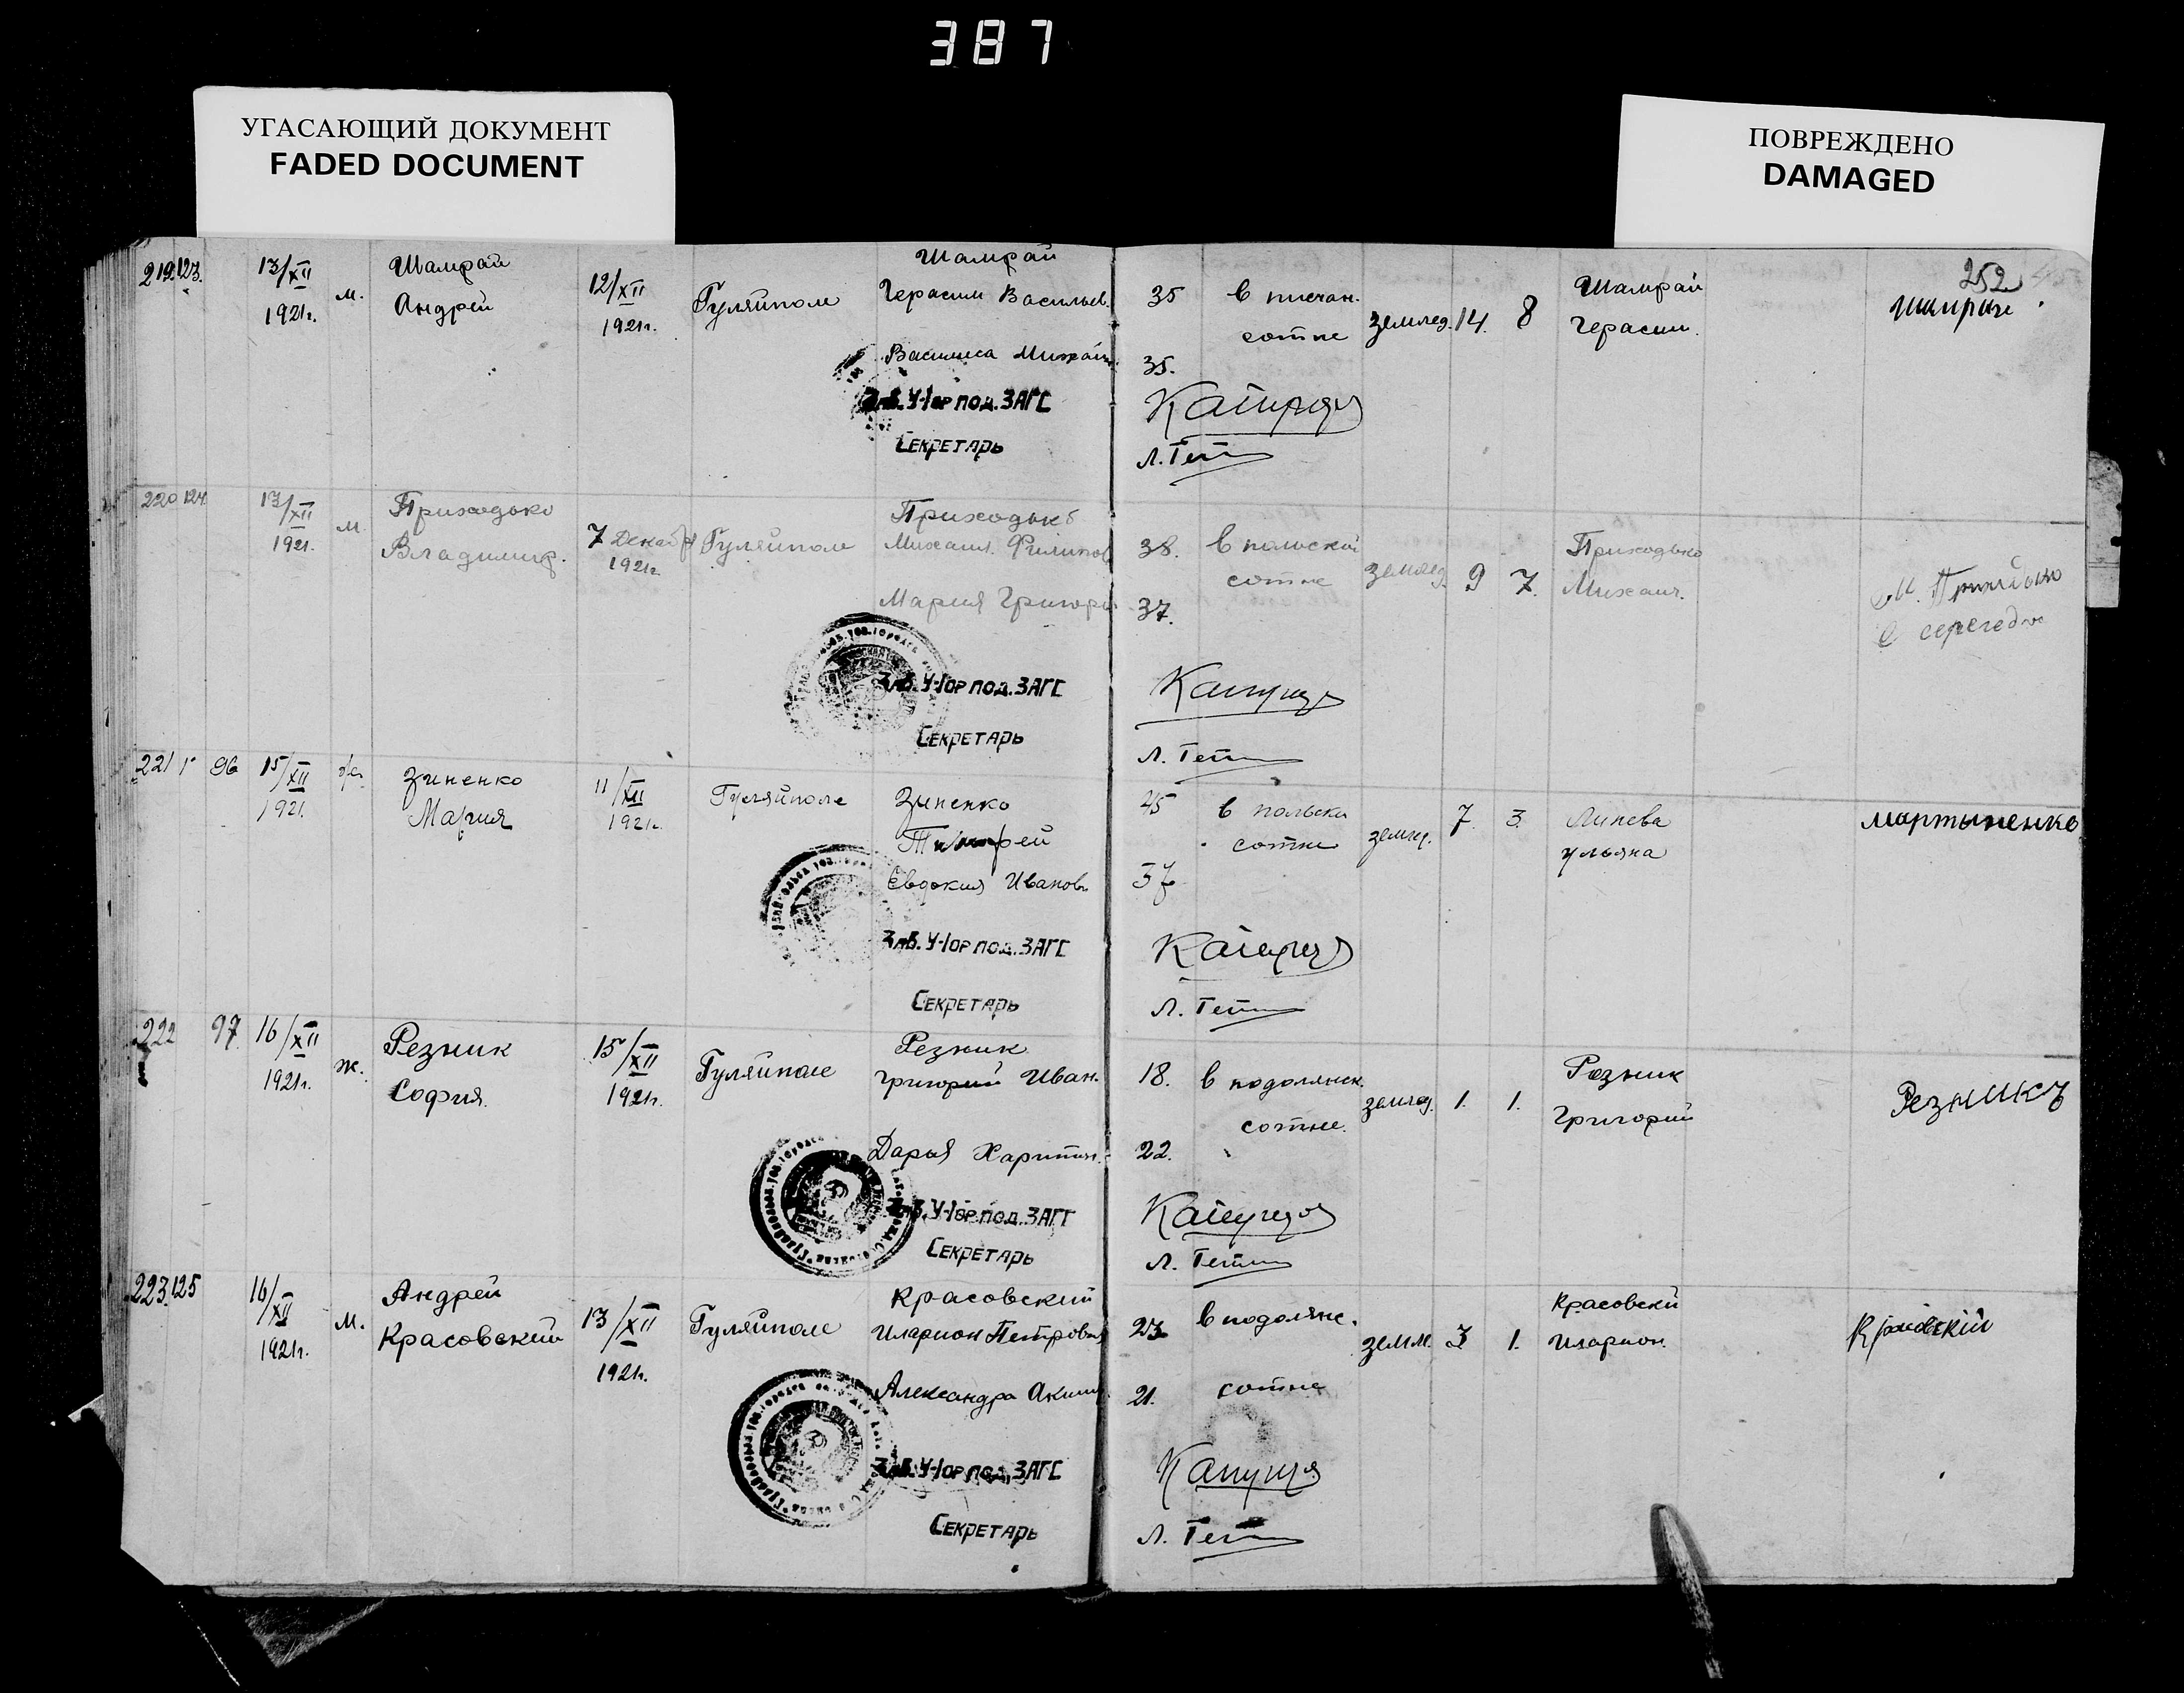 387
УГАСАЮЩИЙ ДОКУМЕНТ
FADED DOCUMENT
ПОВРЕЖДЕНО
DAMAGED
252
219 123. 13/XII 1921г. м. Шамрай Андрей 12/XII 1921г. Гуляйполе Шамрай Герасим Васильев. 35 в песчан. сотне землед. 14. 8 Шамрай Герасим.
Василиса Михайл. 35.
Зав. У-гор под. ЗАГС
Секретарь Л. Гет
220 124 13/XII 1921. м. Приходько Владимир. 7 Декабря 1921г. Гуляйполе Приходько Михаил. Филипов 38. в польской сотне землед. 9 7. Приходько Михаил.
Мария Григорь 37.
Зав. У-гор под. ЗАГС
Секретарь Л. Гет
221 96 15/XII 1921. Зиненко Мария 11/XII 1921г. Гуляйполе Зиненко 45 в польской сотне землед. 7 3. Линева Ульяна Мартыненко
Евдокия Иванов. 37
Зав. У-гор под. ЗАГС
Секретарь Л. Гет
222 97 16/XII 1921г. ж. Резник София. 15/XII 1921г. Гуляйполе Резник Григорий Иван. 18. в подолянск. сотне. землед. 1. 1. Резник Григорий Резникъ
Дарья Харитин. 22.
Зав. У-гор под. ЗАГС
Секретарь Л. Гет
223. 125 16/XII 1921г. м. Андрей Красовский 13/XII 1921г. Гуляйполе Красовский Иларион Петрович 23 в подолянс. сотне земл. 3 1. Красовский Иларион. Красовский
Александра Аким. 21.
Зав. У-гор под. ЗАГС
Секретарь Л. Гет